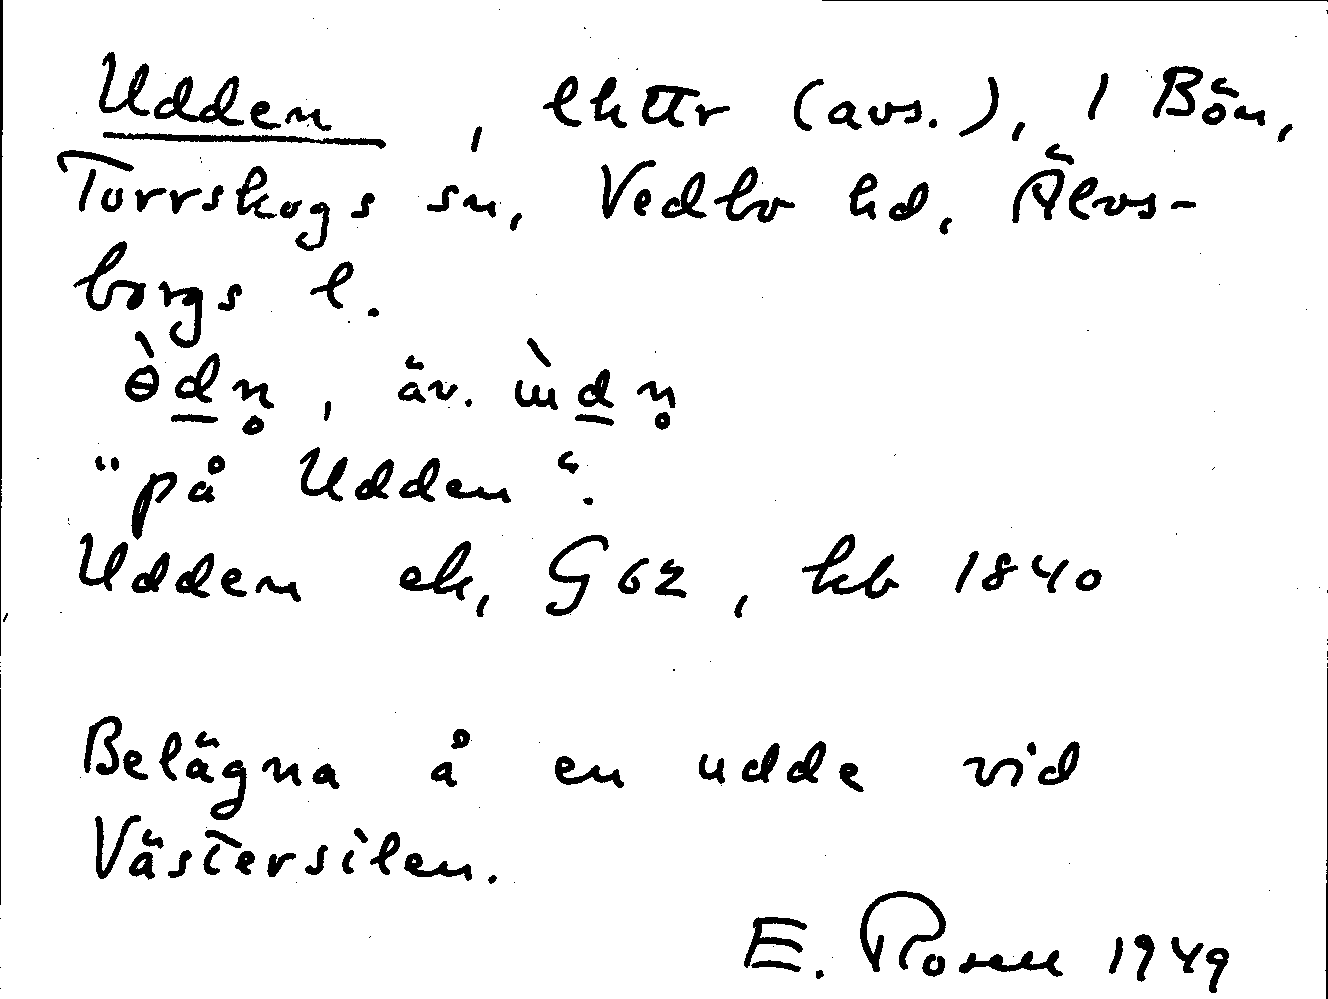 Udden, lhttr (avs.), 1 Bön,
Torrskogs sn, Vedbo hd, Älvs-
borgs l.
ɵ̀dn̥, äv. ɯ̀dn̥
"på Udden".
Udden ek, G62, kb 1840
Belägna å en udde vid
Västersilen.
E. Rosell 1949